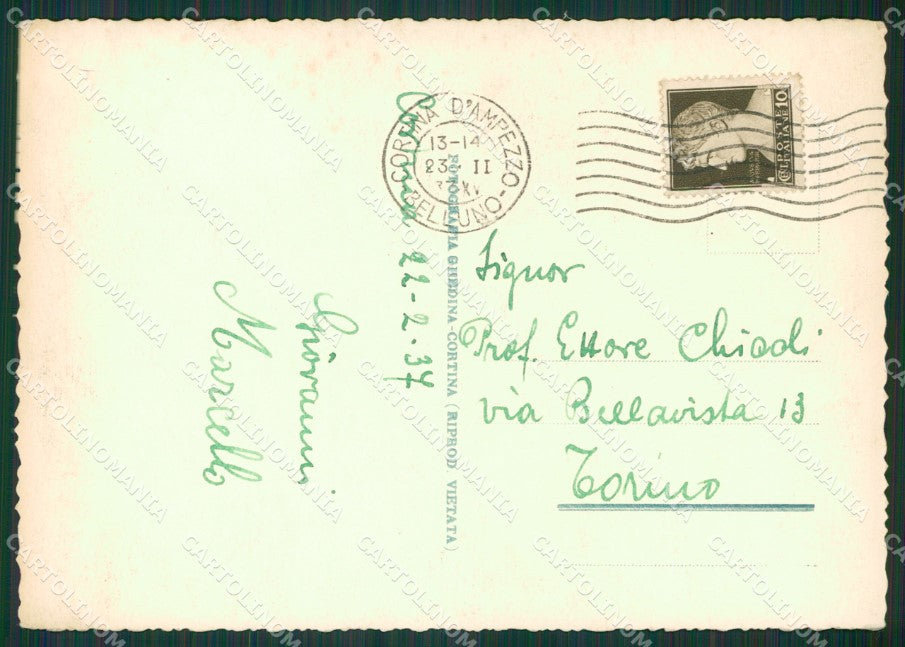 Cortina 22-2-37
Giovanni
Marcello
FOTOGRAFIA GHEDINA-CORTINA (RIPROD VIETATA)
CORTINA D'AMPEZZO
13-14
23 II
XV
BELLUNO
10
POSTE
ITALIANE
Signor
Prof. Ettore Chiodi
via Bellavista 13
Torino
CARTOLINOMANIA